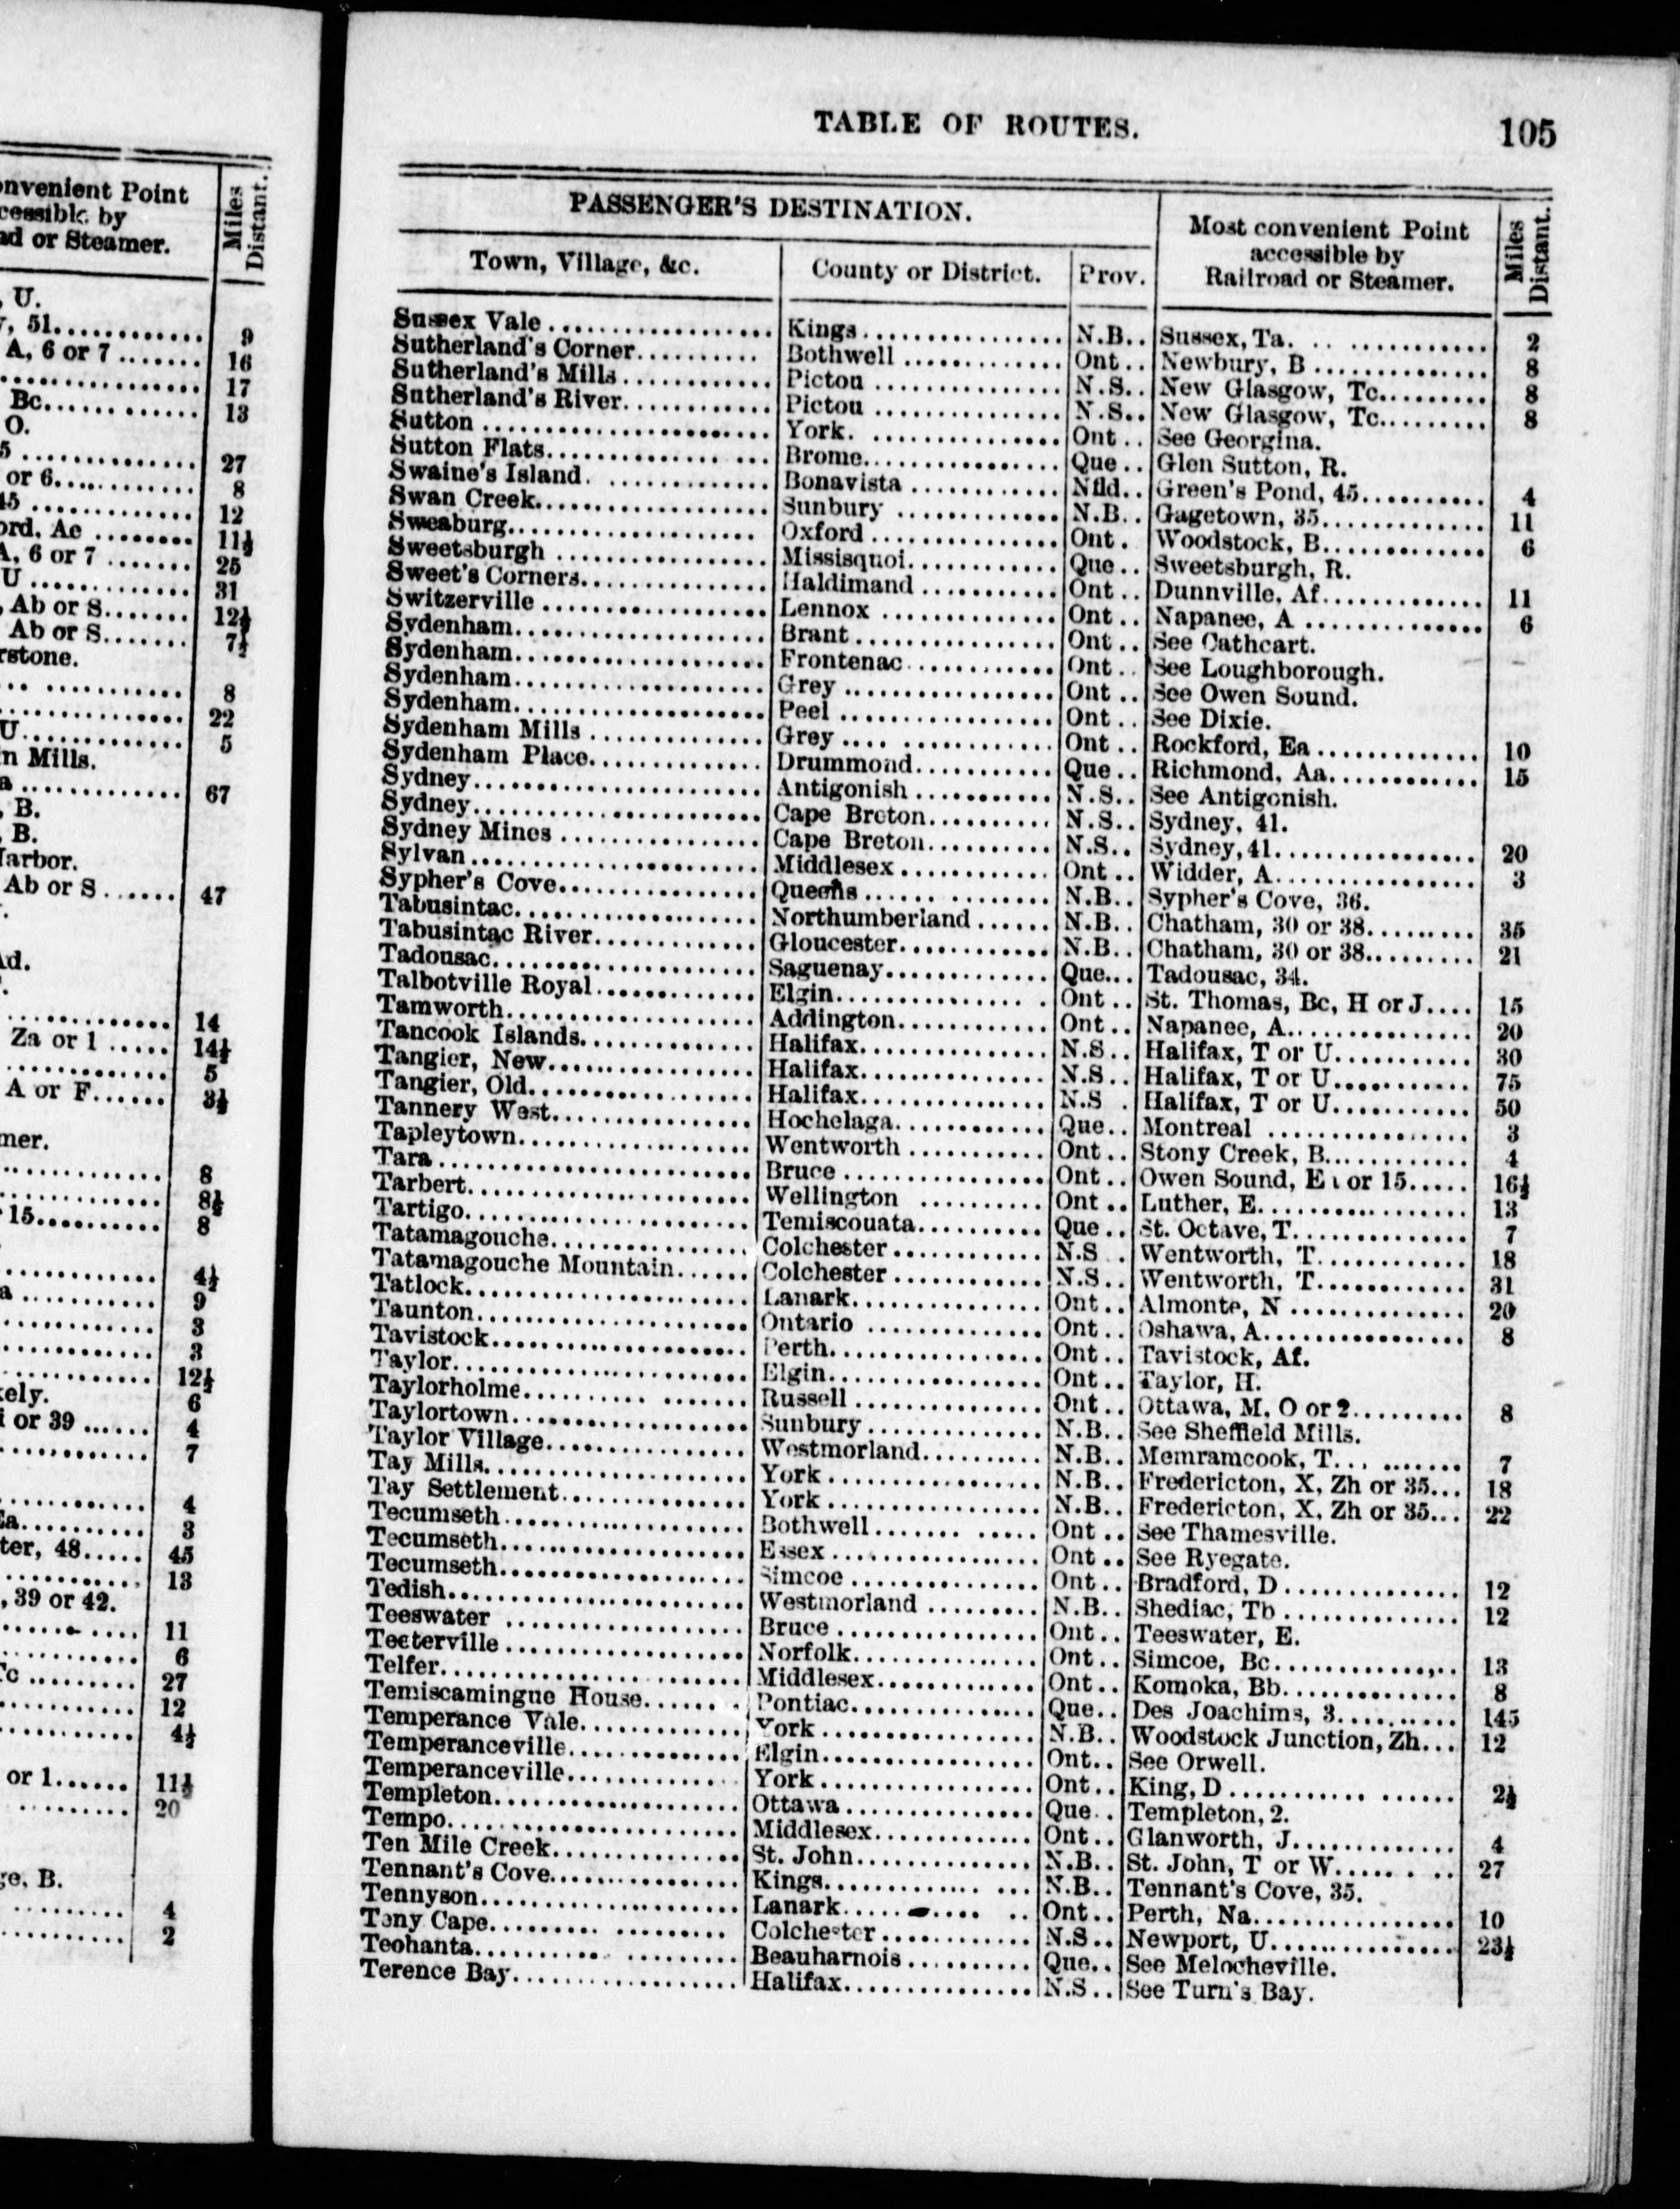 nvenient Point
cessible by
ad or Steamer.
Miles
Distant.
, U.
, 51............ 9
A, 6 or 7....... 16
................ 17
Bc.............. 13
O.
5............... 27
or 6............ 8
45.............. 12
ord, Ac......... 11½
A, 6 or 7....... 25
U............... 31
, Ab or S....... 12½
Ab or S......... 7½
rstone.
................ 8
................ 22
U............... 5
n Mills.
a............... 67
, B.
, B.
Harbor.
Ab or S...... 47
Ad.
............. 14
Za or 1..... 14½
............. 5
A or F...... 3½
mer.
............. 8
............. 8½
15........... 8
............. 4½
a............ 9
............. 3
............. 3
............. 12½
kely. 6
i or 39...... 4
............. 7
............. 4
Ea........... 3
ter, 48..... 45
............. 13
, 39 or 42.
............. 11
............. 6
Tc........... 27
............. 12
............. 4½
or 1...... 11½
............. 20
ge, B.
............. 4
............. 2
TABLE OF ROUTES. 105
PASSENGER'S DESTINATION.
Most convenient Point
accessible by
Railroad or Steamer.
Miles
Distant.
Town, Village, &c. County or District. Prov.
Sussex Vale.......... Kings.......... N.B.. Sussex, Ta.......... 2
Sutherland's Corner.......... Bothwell.......... Ont.. Newbury, B.......... 8
Sutherland's Mills.......... Pictou.......... N.S.. New Glasgow, Tc.......... 8
Sutherland's River.......... Pictou.......... N.S.. New Glasgow, Tc.......... 8
Sutton.......... York.......... Ont.. See Georgina.
Sutton Flats.......... Brome.......... Que.. Glen Sutton, R.
Swaine's Island.......... Bonavista.......... Nfld.. Green's Pond, 45.......... 4
Swan Creek.......... Sunbury.......... N.B.. Gagetown, 35.......... 11
Sweaburg.......... Oxford.......... Ont. Woodstock, B.......... 6
Sweetsburgh.......... Missisquoi.......... Que.. Sweetsburgh, R.
Sweet's Corners.......... Haldimand.......... Ont.. Dunnville, Af.......... 11
Switzerville.......... Lennox.......... Ont.. Napanee, A.......... 6
Sydenham.......... Brant.......... Ont.. See Cathcart.
Sydenham.......... Frontenac.......... Ont.. See Loughborough.
Sydenham.......... Grey.......... Ont.. See Owen Sound.
Sydenham.......... Peel.......... Ont.. See Dixie.
Sydenham Mills.......... Grey.......... Ont.. Rockford, Ea.......... 10
Sydenham Place.......... Drummond.......... Que.. Richmond, Aa.......... 15
Sydney.......... Antigonish.......... N.S.. See Antigonish.
Sydney.......... Cape Breton.......... N.S.. Sydney, 41.
Sydney Mines.......... Cape Breton.......... N.S.. Sydney, 41.......... 20
Sylvan.......... Middlesex.......... Ont.. Widder, A.......... 3
Sypher's Cove.......... Queens.......... N.B.. Sypher's Cove, 36.
Tabusintac.......... Northumberland.......... N.B.. Chatham, 30 or 38.......... 35
Tabusintac River.......... Gloucester.......... N.B.. Chatham, 30 or 38.......... 21
Tadousac.......... Saguenay.......... Que... Tadousac, 34.
Talbotville Royal.......... Elgin.......... Ont.. St. Thomas, Bc, H or J.... 15
Tamworth.......... Addington.......... Ont.. Napanee, A.......... 20
Tancook Islands.......... Halifax.......... N.S.. Halifax, T or U.......... 30
Tangier, New.......... Halifax.......... N.S.. Halifax, T or U.......... 75
Tangier, Old.......... Halifax.......... N.S. Halifax, T or U.......... 50
Tannery West.......... Hochelaga.......... Que.. Montreal.......... 3
Tapleytown.......... Wentworth.......... Ont.. Stony Creek, B.......... 4
Tara.......... Bruce.......... Ont.. Owen Sound, or 15..... 16½
Tarbert.......... Wellington.......... Ont.. Luther, E.......... 13
Tartigo.......... Temiscouata.......... Que.. St. Octave, T.......... 7
Tatamagouche.......... Colchester.......... N.S.. Wentworth, T.......... 18
Tatamagouche Mountain...... Colchester.......... N.S.. Wentworth, T.......... 31
Tatlock.......... Lanark.......... Ont.. Almonte, N.......... 20
Taunton.......... Ontario.......... Ont.. Oshawa, A.......... 8
Tavistock.......... Perth.......... Ont.. Tavistock, Af.
Taylor.......... Elgin.......... Ont.. Taylor, H.
Taylorholme.......... Russell.......... Ont.. Ottawa, M, O or 2.......... 8
Taylortown.......... Sunbury.......... N.B.. See Sheffield Mills.
Taylor Village.......... Westmorland.......... N.B.. Memramcook, T.......... 7
Tay Mills.......... York.......... N.B.. Fredericton, X, Zh or 35... 18
Tay Settlement.......... York.......... N.B.. Fredericton, X, Zh or 35... 22
Tecumseth.......... Bothwell.......... Ont.. See Thamesville.
Tecumseth.......... Essex.......... Ont.. See Ryegate.
Tecumseth.......... Simcoe.......... Ont.. Bradford, D.......... 12
Tedish.......... Westmorland.......... N.B.. Shediac, Tb.......... 12
Teeswater.......... Bruce.......... Ont.. Teeswater, E.
Teeterville.......... Norfolk.......... Ont.. Simcoe, Bc.......... 13
Telfer.......... Middlesex.......... Ont.. Komoka, Bb.......... 8
Temiscamingue House.......... Pontiac.......... Que.. Des Joachims, 3.......... 145
Temperance Vale.......... York.......... N.B.. Woodstock Junction, Zh... 12
Temperanceville.......... Elgin.......... Ont.. See Orwell.
Temperanceville.......... York.......... Ont.. King, D.......... 2½
Templeton.......... Ottawa.......... Que.. Templeton, 2.
Tempo.......... Middlesex.......... Ont.. Glanworth, J.......... 4
Ten Mile Creek.......... St. John.......... N.B.. St. John, T or W.......... 27
Tennant's Cove.......... Kings.......... N.B.. Tennant's Cove, 35.
Tennyson.......... Lanark.......... Ont.. Perth, Na.......... 10
Teny Cape.......... Colchester.......... N.S.. Newport, U.......... 23½
Teohanta.......... Beauharnois.......... Que.. See Melocheville.
Terence Bay.......... Halifax.......... N.S.. See Turn's Bay.